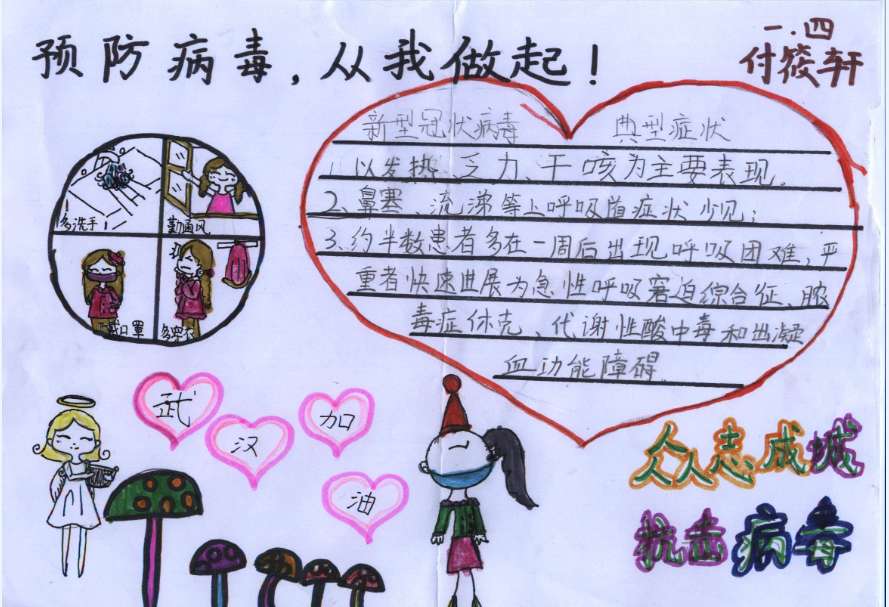 预防病毒，从我做起！
一.四
付筱轩
新型冠状病毒 典型症状
1、以发热、乏力、干咳为主要表现。
2、鼻塞、流涕等上呼吸道症状少见；
3、约半数患者多在一周后出现呼吸困难，严
重者快速进展为急性呼吸窘迫综合征、脓
毒症休克、代谢性酸中毒和出凝
血功能障碍。
多洗手
勤通风
戴口罩
多穿衣
武
汉
加
油
众人志成城
抗击病毒